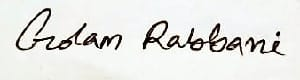 Golam Rabbani